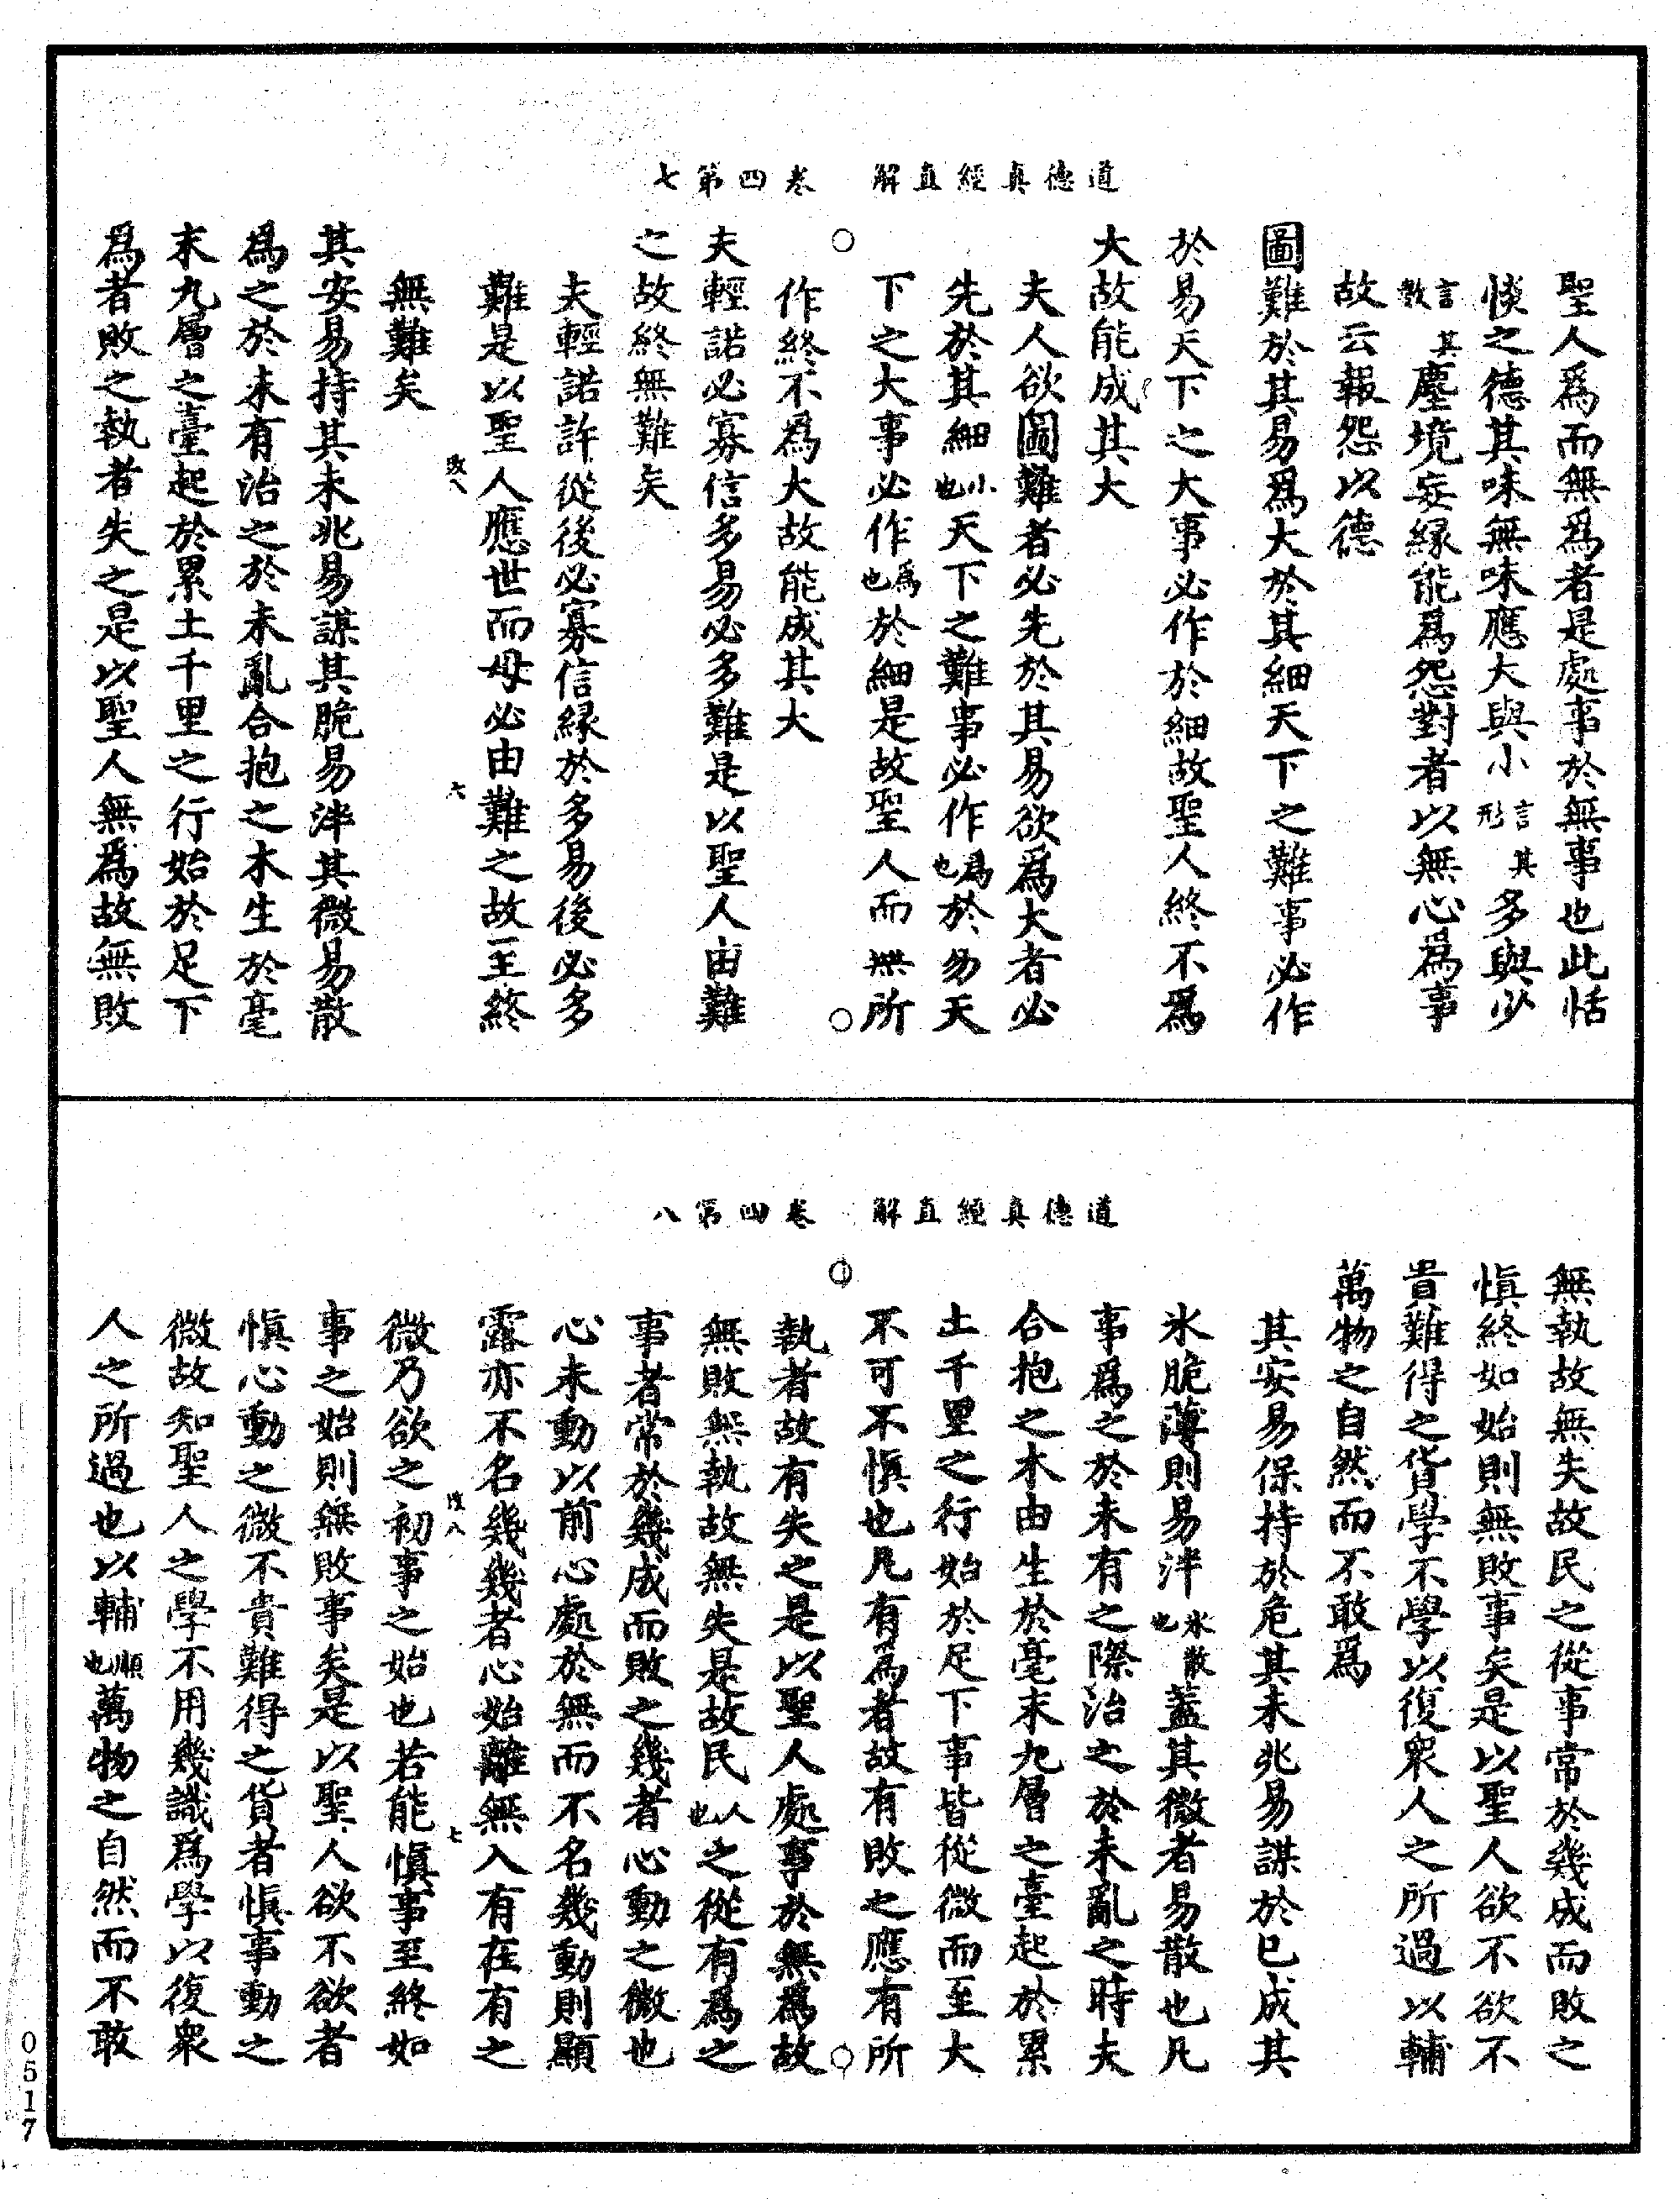 道德真經直解　卷四第七
聖人爲而無爲者是處事於無事也此恬
惔之德其味無味應大與小言其形多與少
言其數塵境妄緣能爲怨對者以無心爲事
故云報怨以德
圖難於其易爲大於其細天下之難事必作
於易天下之大事必作於細故聖人終不爲
大故能成其大
夫人欲圖難者必先於其易欲爲大者必
先於其細小也天下之難事必作爲也於易天
下之大事必作爲也於細是故聖人而無所
作終不爲大故能成其大
夫輕諾必寡信多易必多難是以聖人由難
之故終無難矣
夫輕諾許從後必寡信緣於多易後必多
難是以聖人應世而母必由難之故至終
無難矣
六
其安易持其未兆易謀其脆易泮其微易散
爲之於未有治之於未亂合抱之木生於毫
末九層之臺起於累土千里之行始於足下
爲者敗之執者失之是以聖人無爲故無敗
道德真經直解　卷四第八
無執故無失故民之從事常於幾成而敗之
慎終如始則無敗事矣是以聖人欲不欲不
貴難得之貨學不學以復衆人之所過以輔
萬物之自然而不敢爲
其安易保持於危其未兆易謀於已成其
氷脆薄則易泮氷散也蓋其微者易散也凡
事爲之於未有之際治之於未亂之時夫
合抱之木由生於毫末九層之臺起於累
土千里之行始於足下事皆從微而至大
不可不慎也凡有爲者故有敗之應有所
執者故有失之是以聖人處事於無爲故
無敗無執故無失是故民人也之從有爲之
事者常於幾成而敗之幾者心動之微也
心未動以前心處於無而不名幾動則顯
露亦不名幾幾者心始離無入有在有之
微乃欲之初事之始也若能慎事至終如
七
事之始則無敗事矣是以聖人欲不欲者
慎心動之微不貴難得之貨者慎事動之
微故知聖人之學不用幾識爲學以復衆
人之所過也以輔順也萬物之自然而不敢
0517